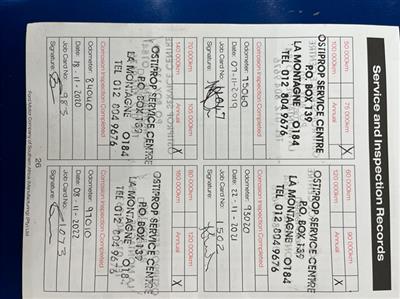 Service and Inspection Records
50 000km 75 000km
100 000km Annual X
OSTIPROP SERVICE CENTRE
P.O. BOX 139
LA MONTAGNE 0184
TEL 012 804 9676
Corrosion Inspection Completed
Odometer: 75060
Date: 07-11-2019
Job Card No.
Signature:
60 000km 90 000km
120 000km Annual X
OSTIPROP SERVICE CENTRE
P.O. BOX 139
LA MONTAGNE 0184
TEL 012 804 9676
Corrosion Inspection Completed
Odometer: 93020
Date: 22-11-2021
Job Card No. 1502
Signature:
70 000km 105 000km
140 000km Annual X
OSTIPROP SERVICE CENTRE
P.O. BOX 139
LA MONTAGNE 0184
TEL 012 804 9676
Corrosion Inspection Completed
Odometer: 84040
Date: 18-11-2020
Job Card No. 983
Signature:
80 000km 120 000km
160 000km Annual X
OSTIPROP SERVICE CENTRE
P.O. BOX 139
LA MONTAGNE 0184
TEL 012 804 9676
Corrosion Inspection Completed
Odometer: 99010
Date: 08-11-2022
Job Card No. 1673
Signature:
26
Ford Motor Company of Southern Africa Manufacturing (Pty) Ltd